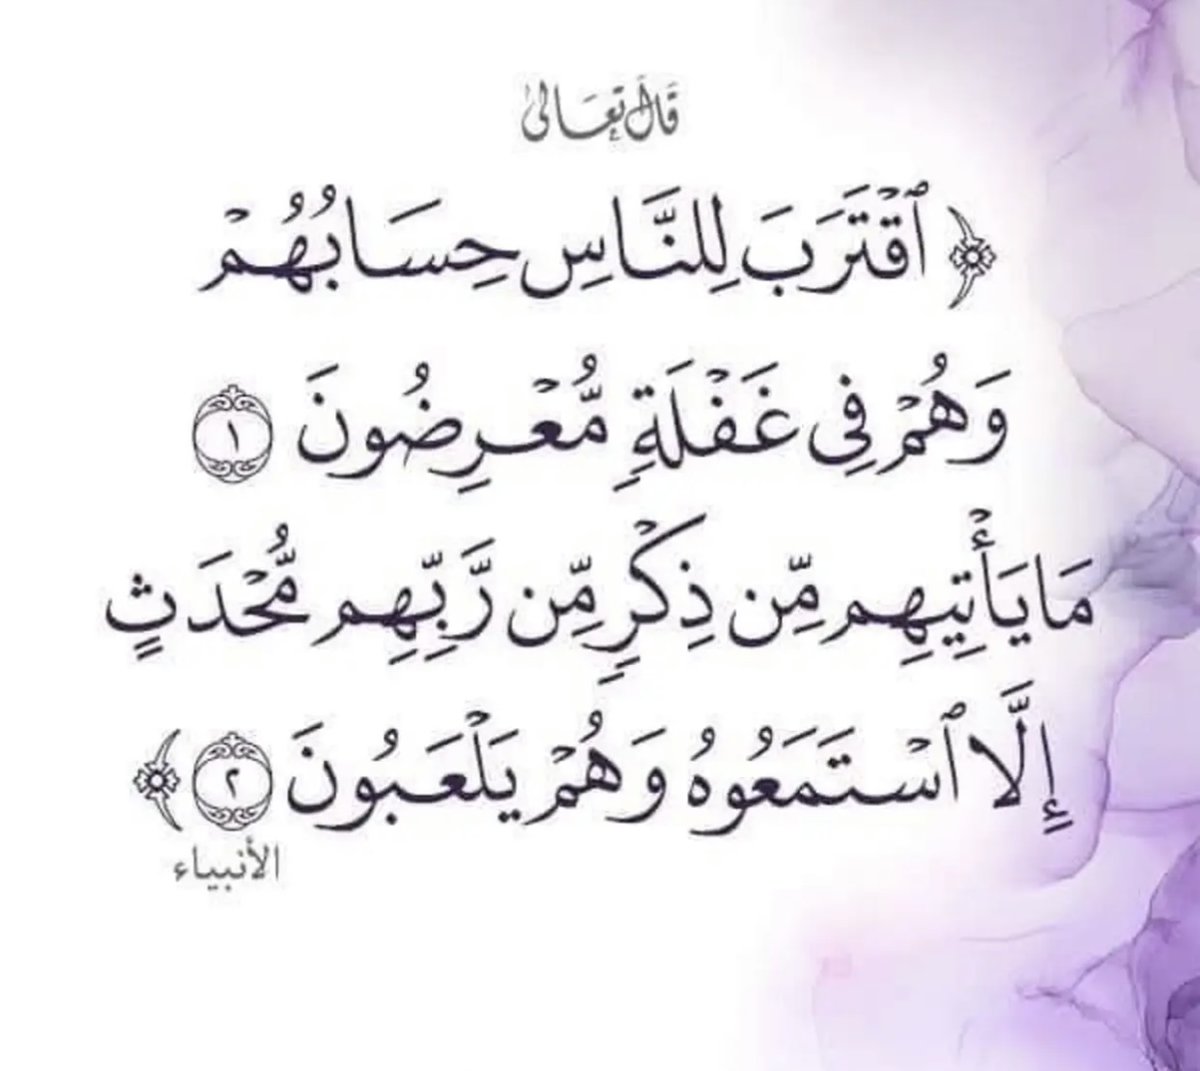 قَالَ تَعَالَىٰ
﴿ ٱقۡتَرَبَ لِلنَّاسِ حِسَابُهُمۡ
وَهُمۡ فِي غَفۡلَةٖ مُّعۡرِضُونَ ١
مَا يَأۡتِيهِم مِّن ذِكۡرٖ مِّن رَّبِّهِم مُّحۡدَثٍ
إِلَّا ٱسۡتَمَعُوهُ وَهُمۡ يَلۡعَبُونَ ٢ ﴾
الأنبياء